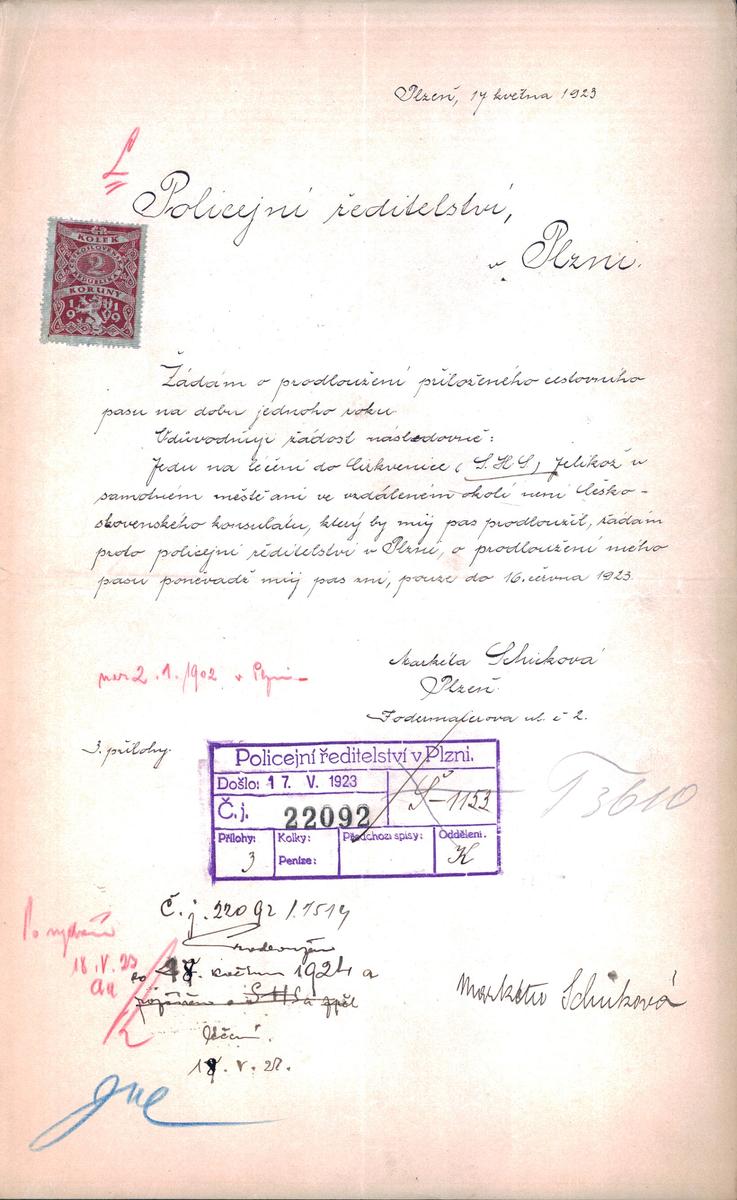 Plzeň, 17 května 1923
L
Policejní ředitelství,
v Plzni.
KOLEK
ČESKOSLOVENSKÁ
2
REPUBLIKA
KORUNY
1919
Žádám o prodloužení přiloženého cestovního
pasu na dobu jednoho roku.
Odůvodňuji žádost následovně:
Jedu na léčení do Cirkvenice (S.H.S.) Jelikož v
samotném městě ani ve vzdáleném okolí není Česko-
slovenského konsulátu, který by můj pas prodloužil, žádám
proto policejní ředitelství v Plzni, o prodloužení mého
pasu poněvadž můj pas zní, pouze do 16. června 1923.
Markéta Schücková
Plzeň
Fodermaierova ul. č 2.
nar 2.1.1902 v Plzni
3. přílohy.
Policejní ředitelství v Plzni.
Došlo: 17. V. 1923
Š-1153
Č. j. 22092
Přílohy: 3
Kolky:
Peníze:
Předchozí spisy:
Oddělení.
K
T3610
Č. j. 22092 / 1514
Prodlouženo
do 18. května 1924 a
SHS a zpět
léčení.
18. V. 23.
18. V. 23
Markéta Schücková